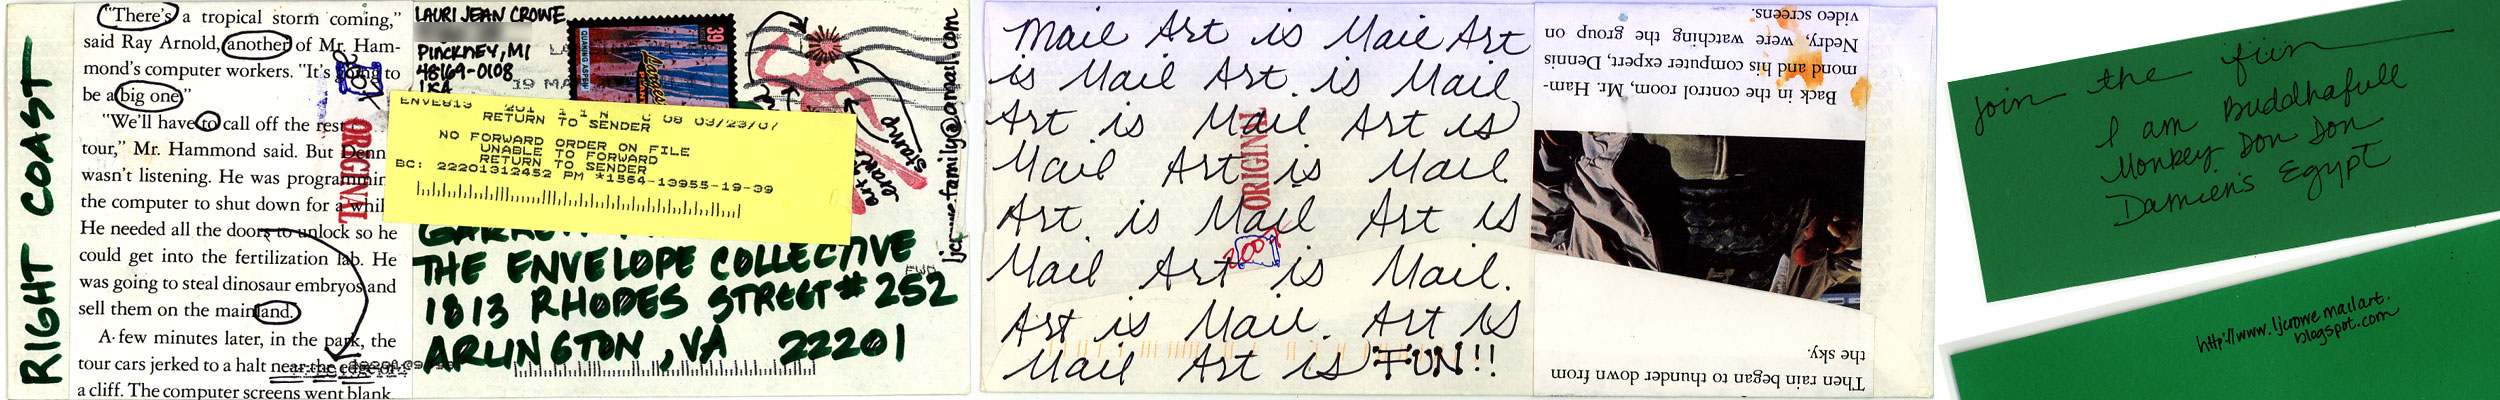 RIGHT COAST
"There's a tropical storm coming,"
said Ray Arnold, another of Mr. Ham-
mond's computer workers. "It's going to
be a big one."
"We'll have to call off the rest
tour," Mr. Hammond said. But Denn
wasn't listening. He was programmin
the computer to shut down for a whil
He needed all the doors to unlock so he
could get into the fertilization lab. He
was going to steal dinosaur embryos and
sell them on the mainland.
A few minutes later, in the park, the
tour cars jerked to a halt near the edge of
a cliff. The computer screens went blank.
ORIGINAL
LAURI JEAN CROWE
PINCKNEY, MI
48169-0108
USA
39
QUAKING ASPEN
19 MA
stamp
eraser
art
family@amail.com
201
RETURN TO SENDER
NO FORWARD ORDER ON FILE
UNABLE TO FORWARD
RETURN TO SENDER
BC: 22201312452 PM *1564-13955-19-39
THE ENVELOPE COLLECTIVE
1813 RHODES STREET # 252
ARLINGTON, VA 22201
Mail Art is Mail Art
is Mail Art. is Mail
Art is Mail Art is
Mail Art is Mail.
Art. is Mail Art is
Mail Art is Mail.
Art is Mail. Art is
Mail Art is FUN!!
ORIGINAL
2007
Then rain began to thunder down from
the sky.
Back in the control room, Mr. Ham-
mond and his computer expert, Dennis
Nedry, were watching the group on
video screens.
Join the fun
I am Buddhafull
Monkey Don Don
Damien's Egypt
http://www.ljcrowemailart.
blogspot.com